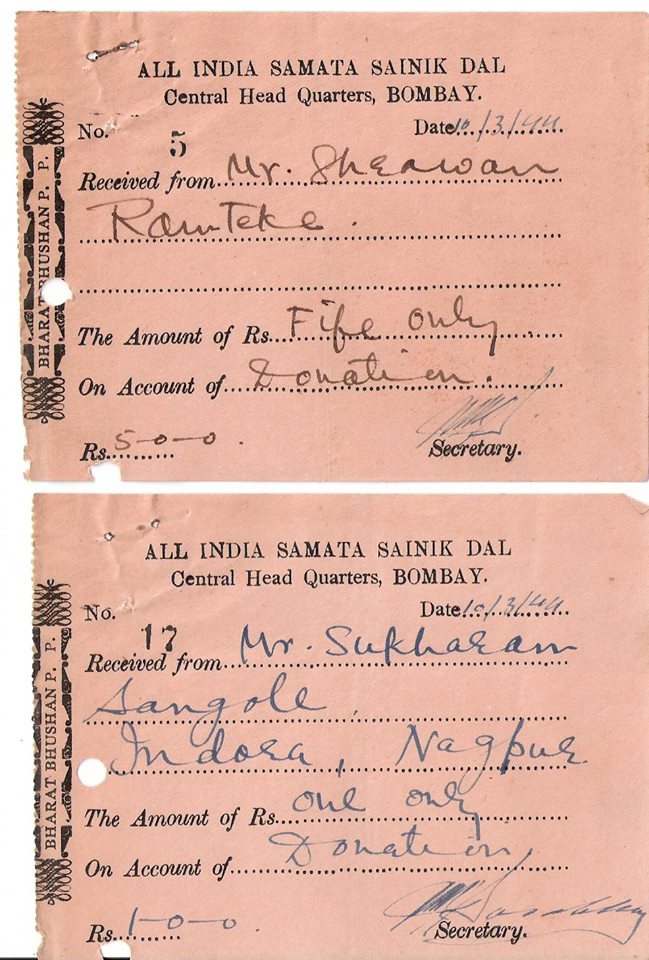 ALL INDIA SAMATA SAINIK DAL
Central Head Quarters, BOMBAY.
No. 5 Date 10/3/44
Received from Mr. Shearwan
Ramteke.
The Amount of Rs. Fife only
On Account of Donation.
Rs. 5-0-0.
Secretary.
BHARAT BHUSHAN P. P.
ALL INDIA SAMATA SAINIK DAL
Central Head Quarters, BOMBAY.
No. 17 Date 10/3/44
Received from Mr. Sukharam
Sangole.
Indora, Nagpur
The Amount of Rs. one only
On Account of Donation
Rs. 1-0-0.
Secretary.
BHARAT BHUSHAN P. P.